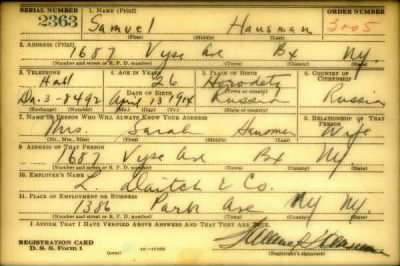 SERIAL NUMBER 1. NAME (Print) ORDER NUMBER
2363 Samuel Hausman 3005
(First) (Middle) (Last)
2. ADDRESS (Print)
1687 Vyse Ave Bx Ny.
(Number and street or R. F. D. number) (Town) (County) (State)
3. TELEPHONE 4. AGE IN YEARS 5. PLACE OF BIRTH 6. COUNTRY OF CITIZENSHIP
Hall 26 Horodetz
DATE OF BIRTH (Town or county)
Da. 3-8492 April 13 1914 Russia Russia
(Exchange) (Number) (Mo.) (Day) (Yr.) (State or country)
7. NAME OF PERSON WHO WILL ALWAYS KNOW YOUR ADDRESS 8. RELATIONSHIP OF THAT PERSON
Mrs. Sarah Hausman Wife
(Mr., Mrs., Miss) (First) (Middle) (Last)
9. ADDRESS OF THAT PERSON
1687 Vyse Ave Bx Ny.
(Number and street or R. F. D. number) (Town) (County) (State)
10. EMPLOYER'S NAME
L. Daitch & Co.
11. PLACE OF EMPLOYMENT OR BUSINESS
1386 Park Ave Ny Ny.
(Number and street or R. F. D. number) (Town) (County) (State)
I AFFIRM THAT I HAVE VERIFIED ABOVE ANSWERS AND THAT THEY ARE TRUE.
REGISTRATION CARD
D. S. S. Form 1
(Registrant's signature)